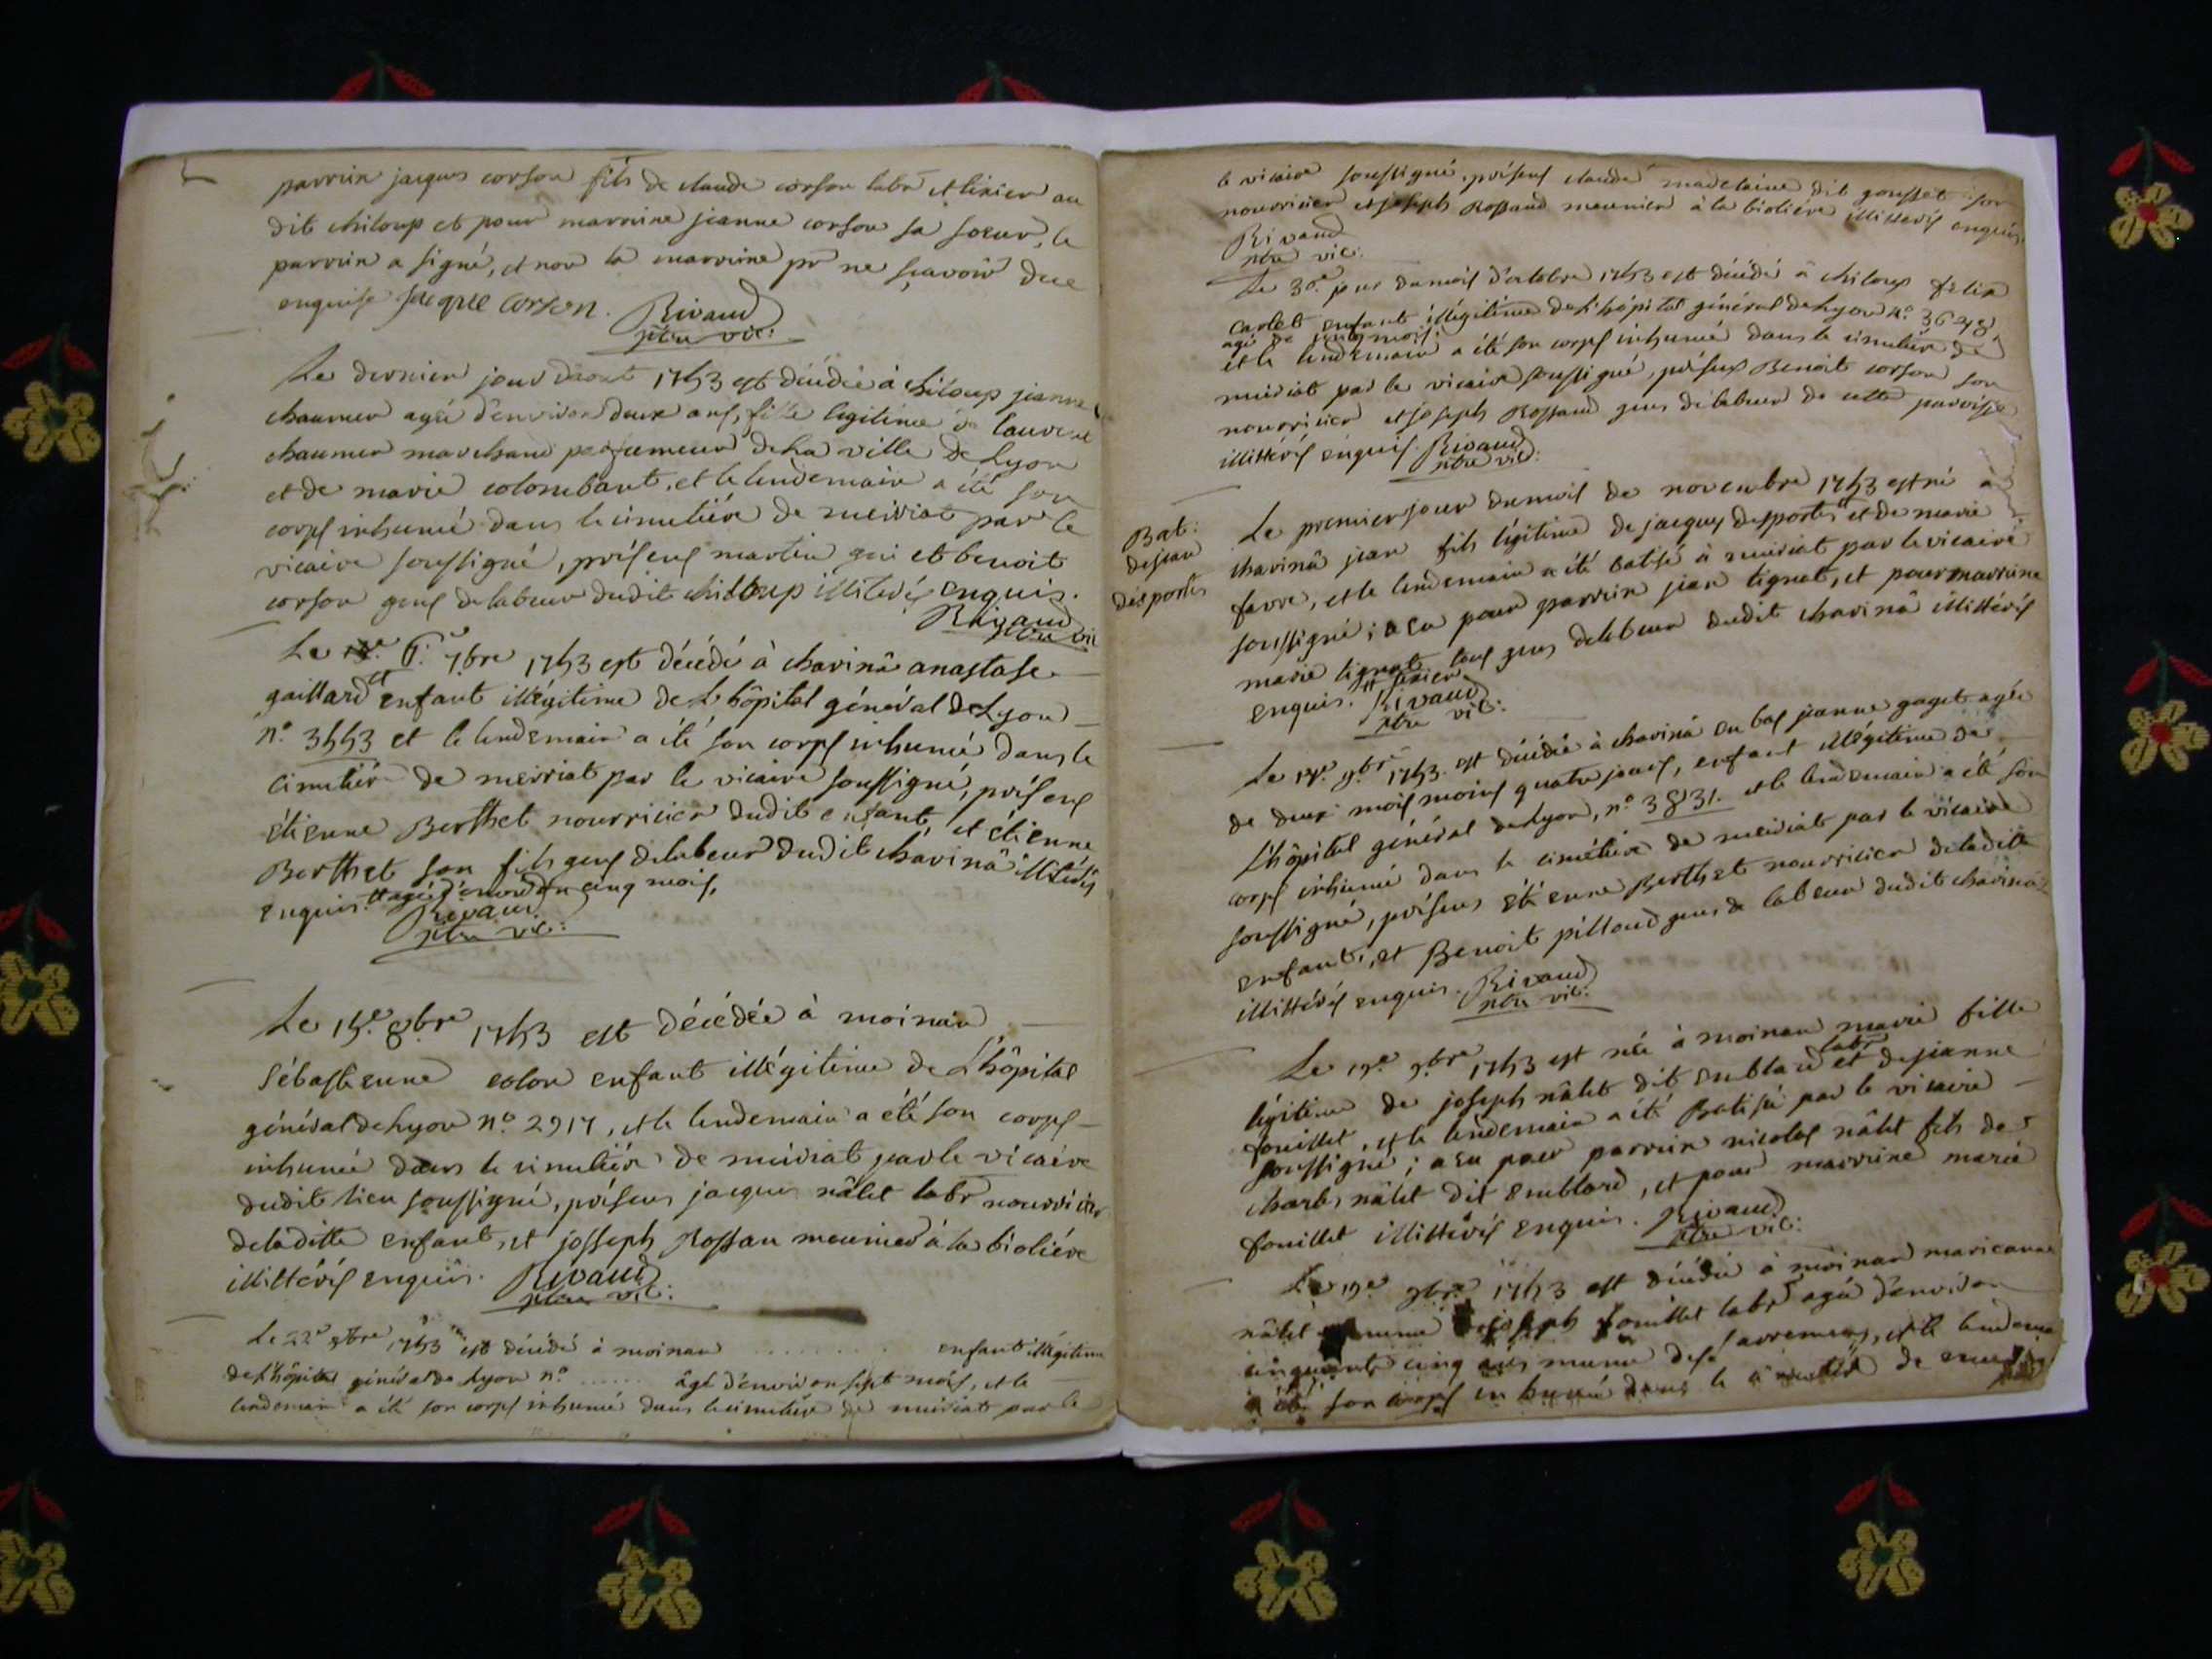 parrein jacques corson fils de claude corson labr et tixier au
dit chiloup et pour marreine jeanne corson sa soeur, le
parrein a signé, et non la marreine pr ne sçavoir due
enquise jacque corson. Rivaud
ptre vic:
Le dernier jour daout 1753 est décédée à chiloup jeanne
chaumer agée d'environ deux ans, fille legitime de laurent
chaumer marchand perfumeur de la ville de Lyon
et de marie colombant, et le lendemain a été son
corps inhumé dans le cimetière de meiriat par le
vicaire soussigné, présens martin gui et benoit
corson gens de labeur dudit chiloup illiterés enquis.
Rivaud
ptre vic
Le 6e 7bre 1753 est décédé à charinâ anastase
gaillard enfant illégitime de L'hôpital général de Lyon
n° 3553 et le lendemain a été son corps inhumé dans le
cimetière de meiriat par le vicaire soussigné, présens
étienne Berthet nourricier dudit enfant, et étienne
Berthet son fils gens de labeur dudit charinâ illiterés
enquis. # agé d'environ cinq mois,
Rivaud
ptre vic:
Le 15e 8bre 1753 est décédée à moinan
Sébastienne colon enfant illégitime de L'hôpital
général de Lyon n° 2917, et le lendemain a été son corps
inhumé dans le cimetière de meiriat par le vicaire
dudit lieu soussigné, présens jacques nâlet labr nourricier
de la ditte enfant, et josseph Rossan meunier à la bioliére
illittérés enquis. Rivaud
ptre vic:
Le 22e 8bre 1753 est décédé à moinan ......... enfant illégitime
de l'hôpital général de Lyon n° ...... âgé d'environ sept mois, et le
lendemain a été son corps inhumé dans le cimetière de meiriat par le
le vicaire soussigné, présens claude madelaine dit gousset son
nourricier et joseph Rossand meunier à la bioliére illitterés enquis.
Rivaud
ptre vic:
Le 30e jour du mois d'octobre 1753 est décédé à chiloup felix
carlet enfant illégitime de l'hôpital général de Lyon n°
agé de mois
et le lendemain a été son corps inhumé dans le cimetière de
meiriat par le vicaire soussigné, présens Benoit corson son
nourricier et joseph Rossand gens de labeur de cette parroisse
illittérés enquis. Rivaud
ptre vic:
Bat:
de jean
desportes
Le premier jour du mois de novembre 1753 est né à
charinâ jean fils légitime de jacques desportes # et de marie
favre, et le lendemain a été batisé à meiriat par le vicaire
soussigné; a eu pour parrein jean tignat, et pour marreine
marie tignat tous gens de labeur dudit charinâ illittérés
enquis. # tixier
Rivaud
ptre vic:
Le 17e 9bre 1753 est décédée à charinâ en bas jeanne gaget agée
de deux mois moins quatre jours, enfant illégitime de
L'hôpital général de Lyon, n° 3831. et le lendemain a été son
corps inhumé dans le cimétière de meiriat par le vicaire
soussigné, présens étienne Berthet nourricier de la ditte
enfant, et Benoit pillaud gens de labeur dudit charinâ
illittérés enquis. Rivaud
ptre vic:
Le 19e 9bre 1753 est née à moinan marie fille
légitime de joseph nâlet dit emblard labr et de jeanne
fouillet, et le lendemain a été Batisée par le vicaire
soussigné; a eu pour parrein nicolas nâlet fils de
charles nâlet dit emblard, et pour marreine marie
fouillet illittérés enquis. Rivaud
ptre vic:
Le 19e 9bre 1753 est décédée à moinan marieanne
nâlet femme de joseph fouillet labr agée d'environ
cinquante cinq ans munie de ses sacremens, et le lendemain
a été son corps inhumé dans le cimetière de